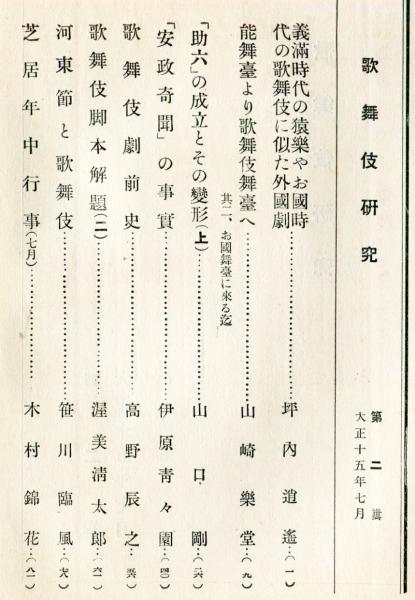 歌舞伎研究
第二輯
大正十五年七月
義滿時代の猿樂やお國時
代の歌舞伎に似た外國劇……坪內逍遙…(一)
能舞臺より歌舞伎舞臺へ……山崎樂堂…(九)
其二、お國舞臺に來る迄
「助六」の成立とその變形(上)……山口剛…(二六)
「安政奇聞」の事實……伊原靑々園…(四〇)
歌舞伎劇前史……高野辰之…(五六)
歌舞伎脚本解題(二)……渥美淸太郎…(六一)
河東節と歌舞伎……笹川臨風…(七八)
芝居年中行事(七月)……木村錦花…(八一)